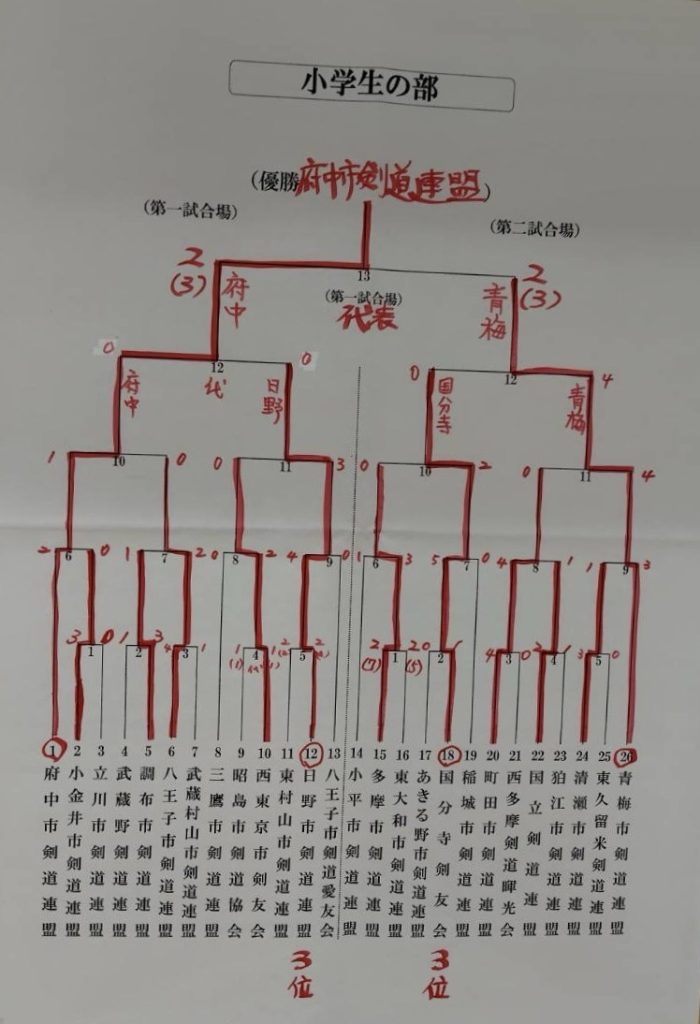 小学生の部
(優勝 府中市剣道連盟)
(第一試合場)
(第二試合場)
2
(3)
府中
13
(第一試合場)
代表
青梅
2
(3)
0
府中
12
代
日野
0
0
国分寺
12
青梅
4
1
10
0
0
11
3
0
10
2
0
11
4
2
6
0
1
7
2
0
8
2
4
9
0
1
6
3
5
7
0
4
8
1
1
9
3
3
1
0
1
2
3
4
3
1
1
(1)
4
1
2
5
2
2
(7)
1
2
(5)
0
2
1
4
3
0
2
4
1
3
5
0
1 府中市剣道連盟
2 小金井市剣道連盟
3 立川市剣道連盟
4 武蔵野剣道連盟
5 調布市剣道連盟
6 八王子市剣道連盟
7 武蔵村山市剣道連盟
8 三鷹市剣道連盟
9 昭島市剣道協会
10 西東京市剣友会
11 東村山市剣道連盟
12 日野市剣道連盟
13 八王子市剣道愛友会
14 小平市剣道連盟
15 多摩市剣道連盟
16 東大和市剣道連盟
17 あきる野市剣道連盟
18 国分寺剣友会
19 稲城市剣道連盟
20 町田市剣道連盟
21 西多摩剣道暉光会
22 国立剣道連盟
23 狛江市剣道連盟
24 清瀬市剣道連盟
25 東久留米剣道連盟
26 青梅市剣道連盟
3位
3位